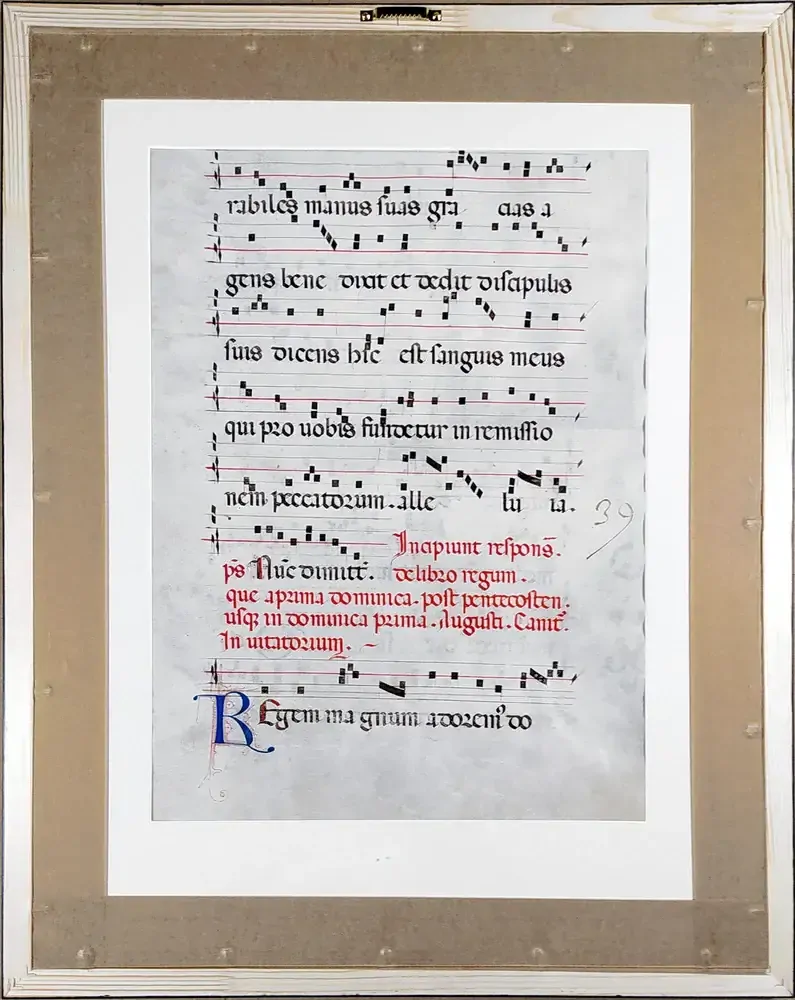 rabiles manus suas gra cias a
gens bene dixit et dedit discipulis
suis dicens hic est sanguis meus
qui pro uobis fundetur in remissio
nem peccatorum. alle lu ia.
39
Incipiunt respons̄.
ps̄ Nūc dimitt̄. de libro regum.
que a prima dominica. post pentecosten.
usq; in dominica prima. Augusti. Canit̄.
In uitatorium. ~
REgem ma gnum adorem᾽ do